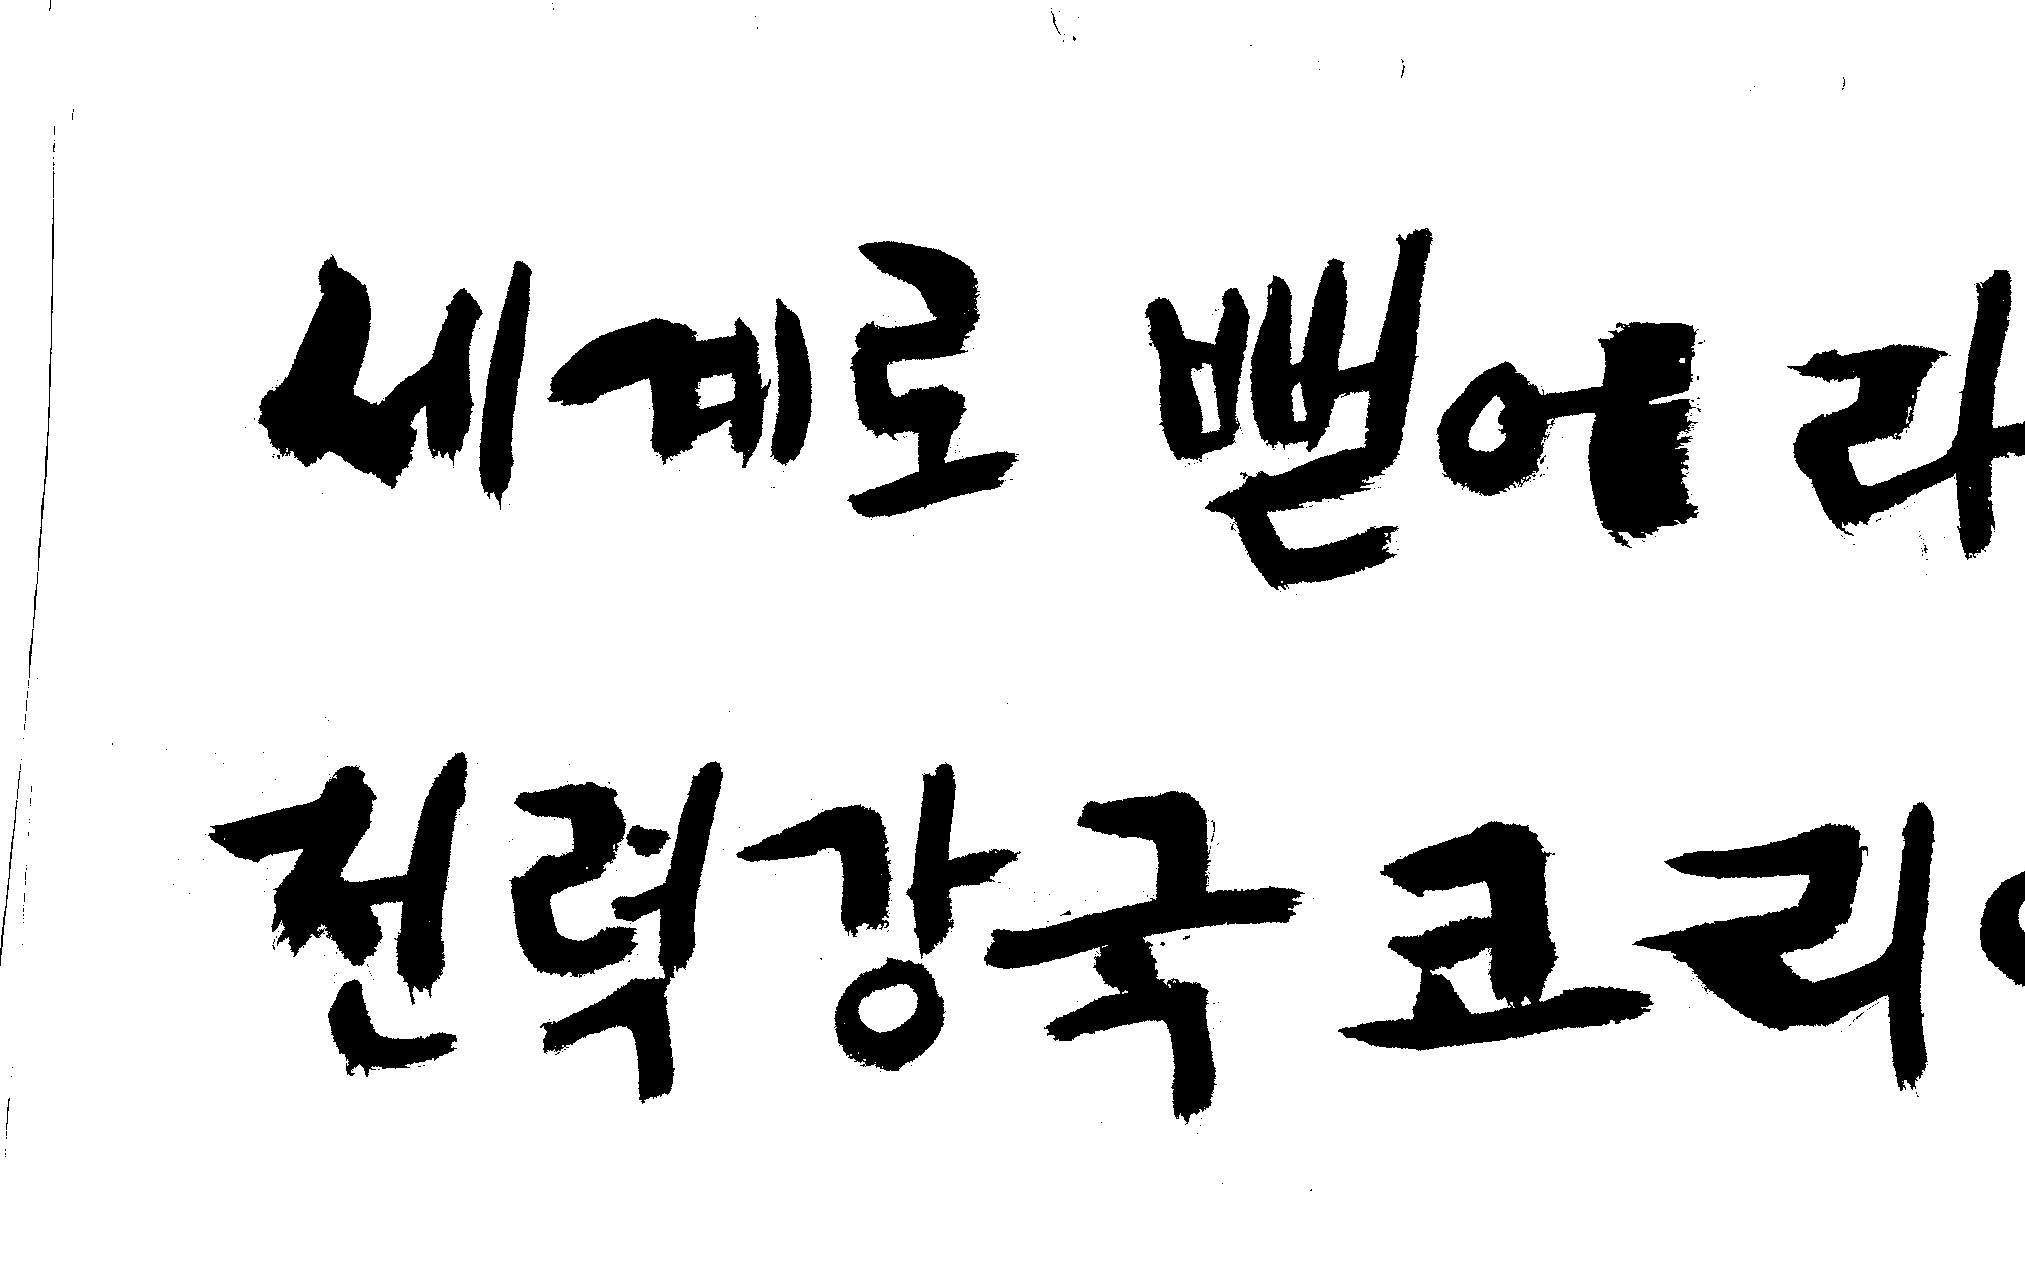 세계로 뻗어라
전력강국 코리